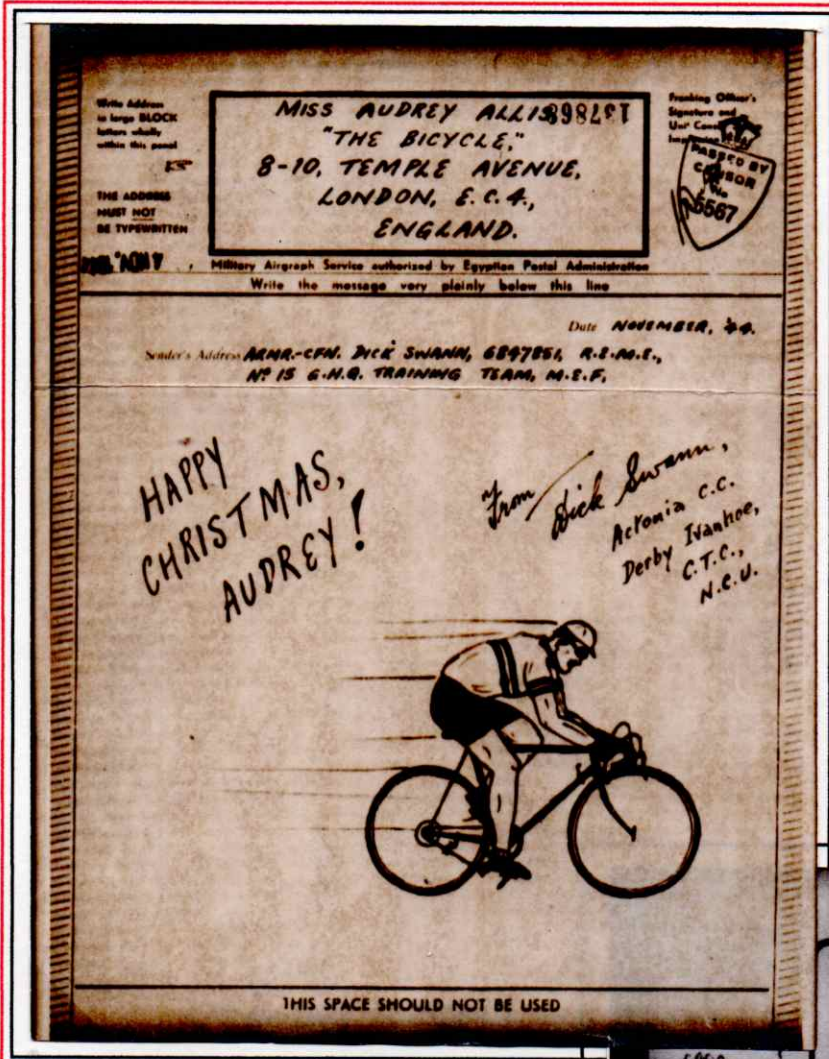 Write Address
in large BLOCK
letters wholly
within this panel
THE ADDRESS
MUST NOT
BE TYPEWRITTEN
MISS AUDREY ALLIS
137868
"THE BICYCLE,"
8-10, TEMPLE AVENUE,
LONDON, E.C.4.,
ENGLAND.
Franking Officer's
Signature and
PASSED BY
CENSOR
No
5567
Military Airgraph Service authorized by Egyptian Postal Administration
Write the message very plainly below this line
Date NOVEMBER, 44.
Sender's Address ARMR.-CFN. DICK SWANN, 6847851, R.E.M.E.,
Nº 15 G.H.Q. TRAINING TEAM, M.E.F,
HAPPY
CHRISTMAS,
AUDREY!
From Dick Swann,
Actonia C.C.
Derby Ivanhoe,
C.T.C.,
N.C.U.
THIS SPACE SHOULD NOT BE USED